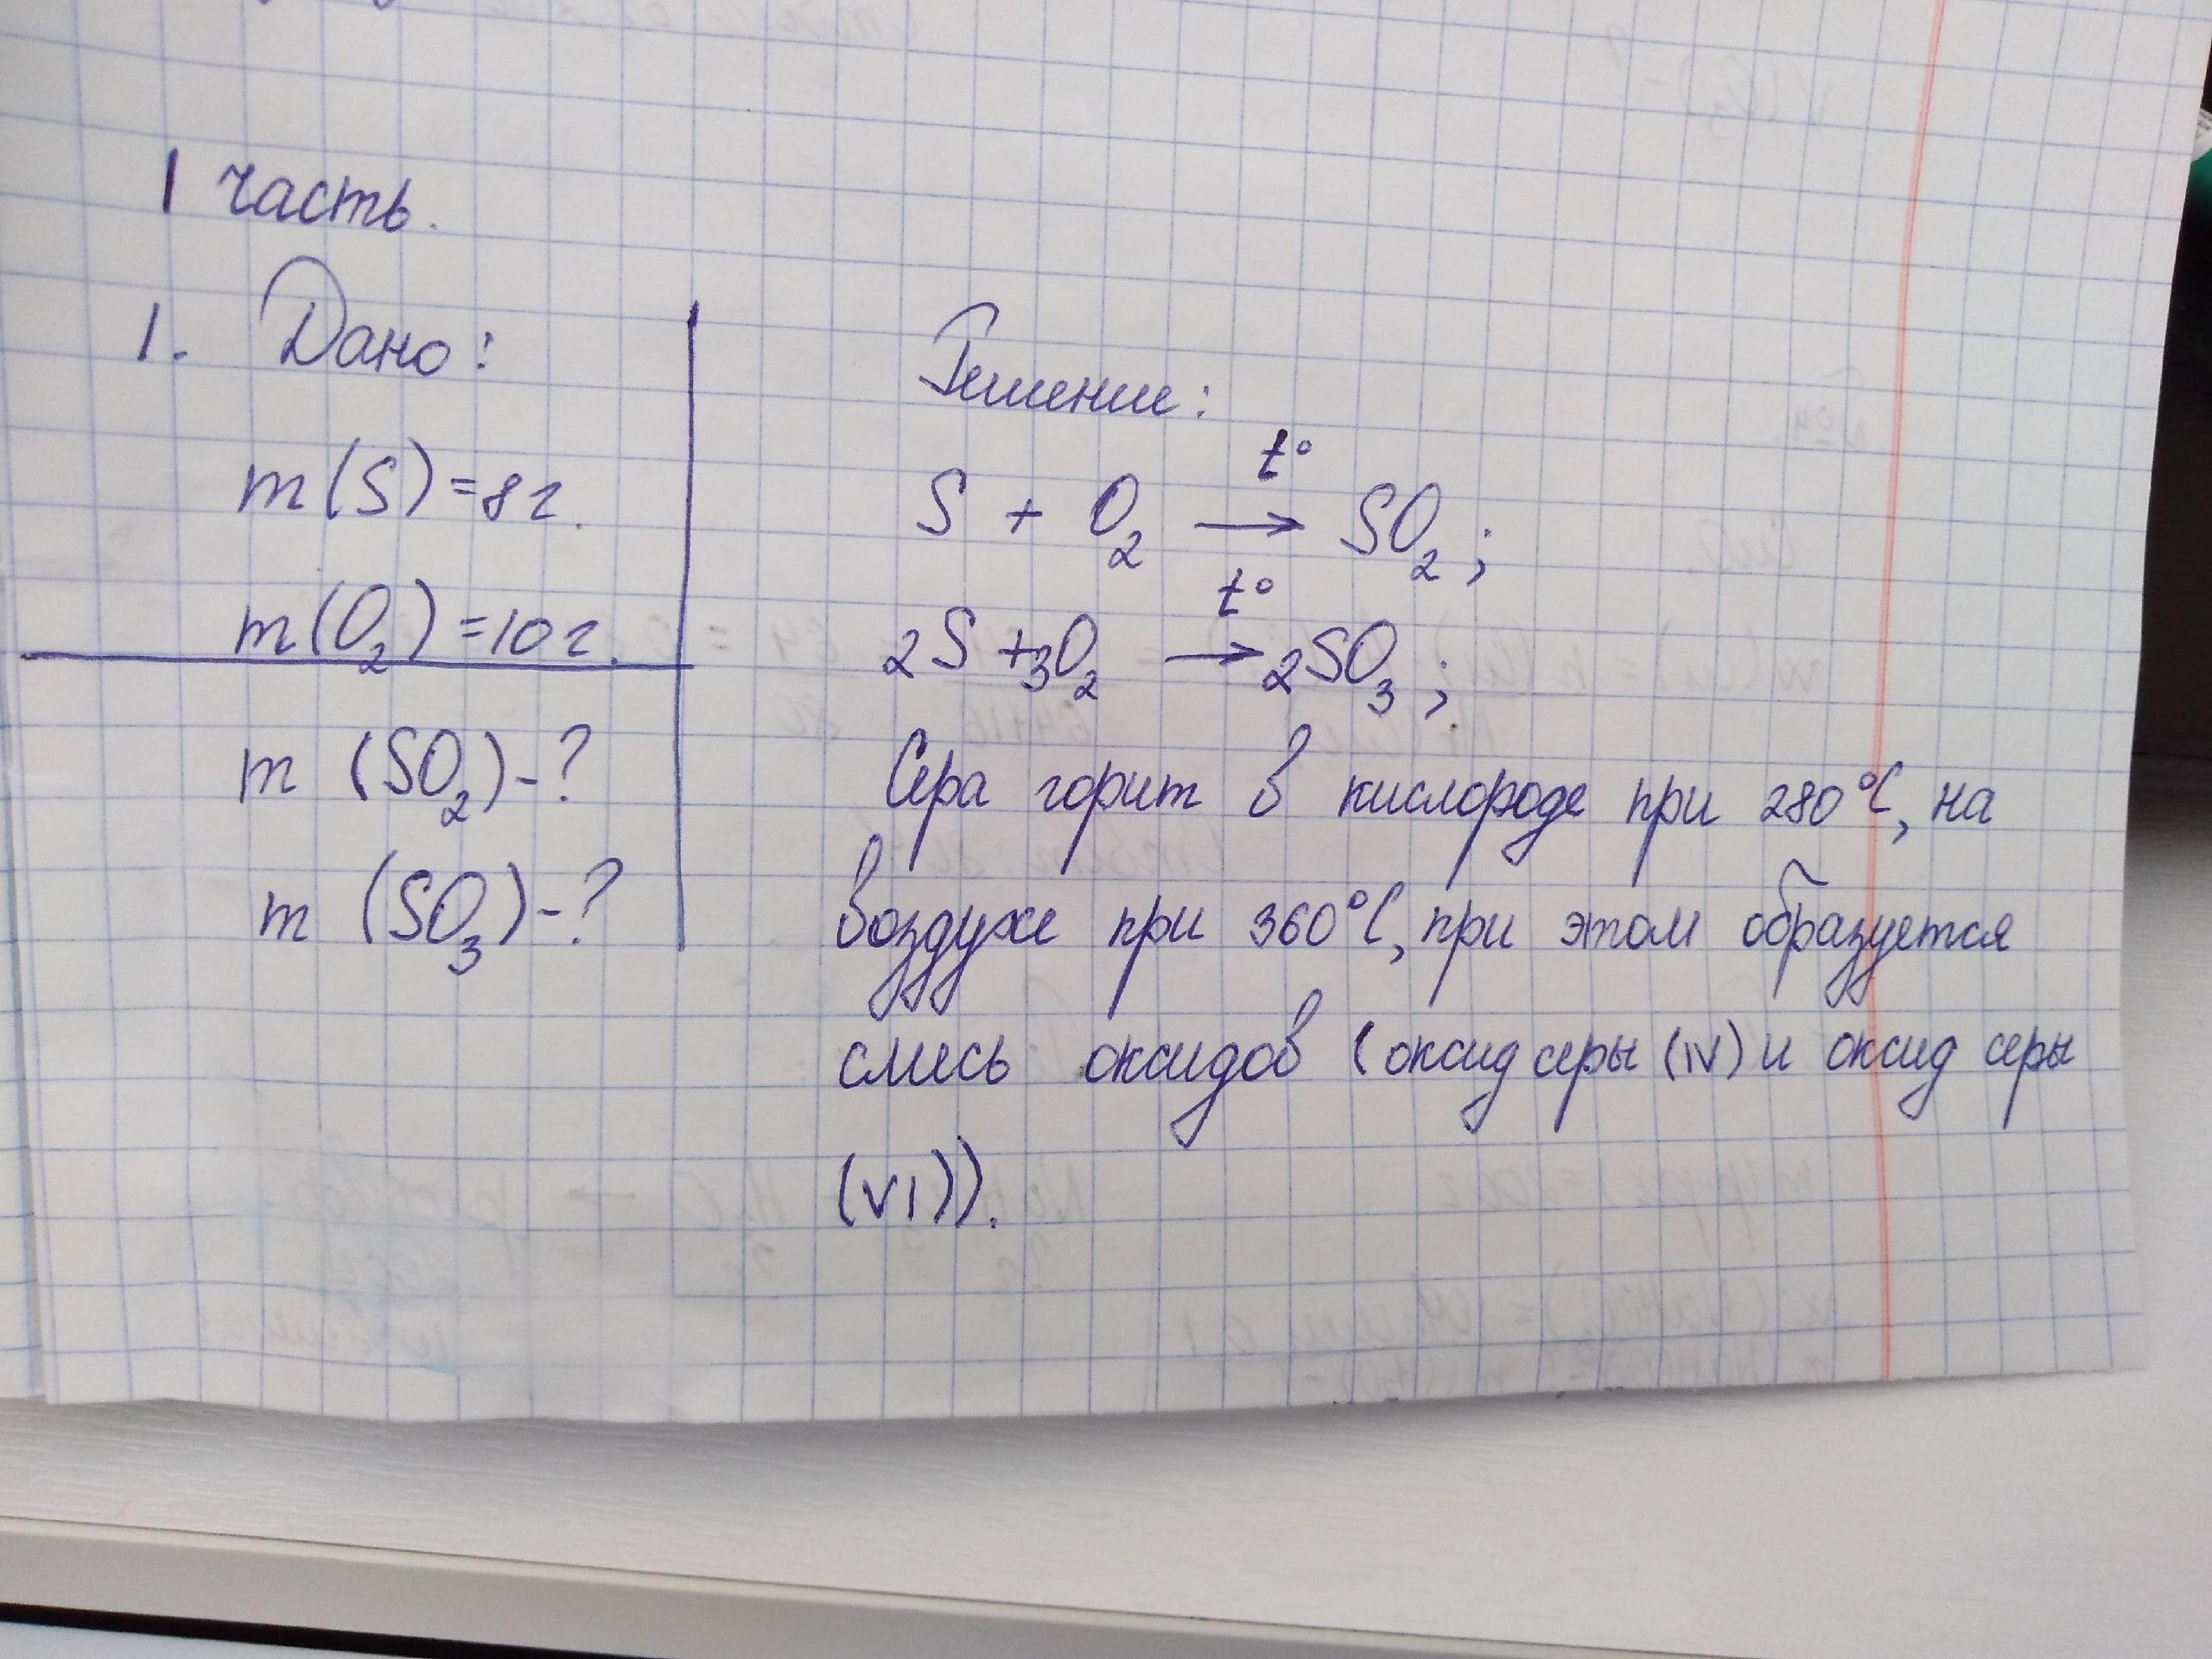 1 часть.
1. Дано:
Решение:
m(S)=8г.
S + O₂ →(t°) SO₂;
m(O₂)=10г.
2S+3O₂ →(t°) 2SO₃;
m (SO₂)-?
m (SO₃)-?
Сера горит в кислороде при 280°С, на
воздухе при 360°С, при этом образуется
смесь оксидов (оксид серы (IV) и оксид серы
(VI)).